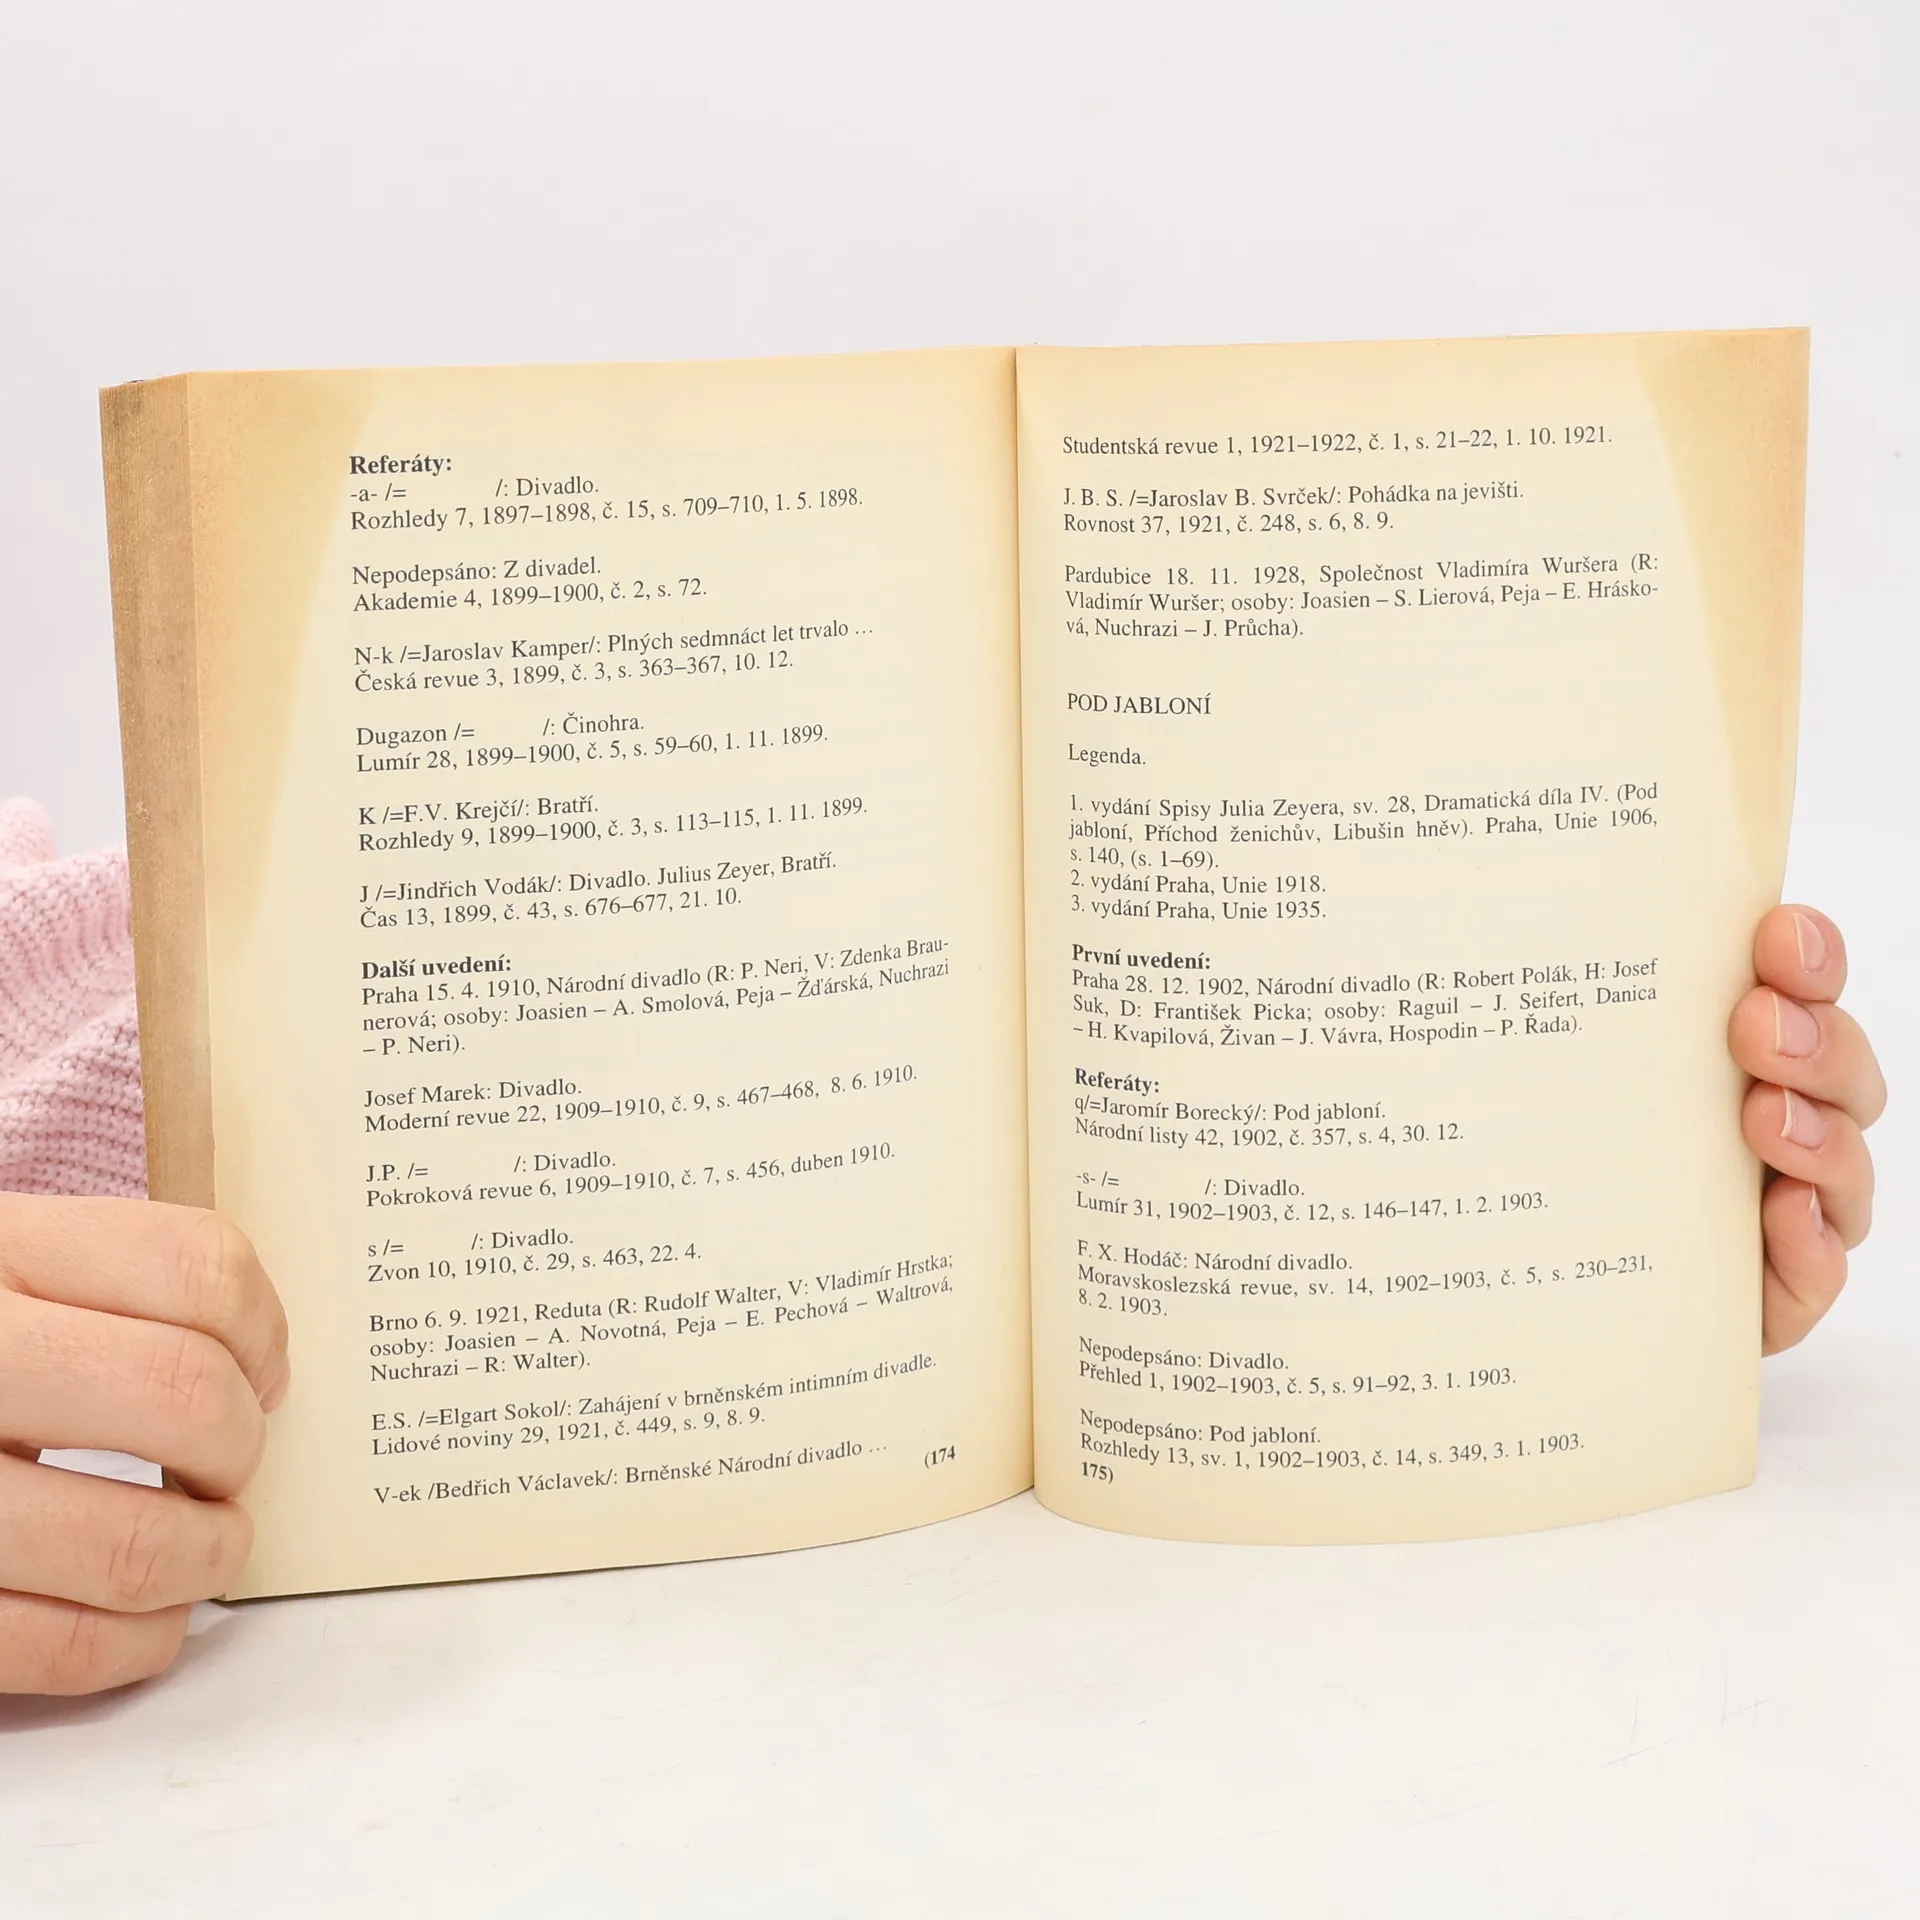 Referáty:
-a- /= /: Divadlo.
Rozhledy 7, 1897–1898, č. 15, s. 709–710, 1. 5. 1898.
Nepodepsáno: Z divadel.
Akademie 4, 1899–1900, č. 2, s. 72.
N-k /=Jaroslav Kamper/: Plných sedmnáct let trvalo ...
Česká revue 3, 1899, č. 3, s. 363–367, 10. 12.
Dugazon /= /: Činohra.
Lumír 28, 1899–1900, č. 5, s. 59–60, 1. 11. 1899.
K /=F.V. Krejčí/: Bratří.
Rozhledy 9, 1899–1900, č. 3, s. 113–115, 1. 11. 1899.
J /=Jindřich Vodák/: Divadlo. Julius Zeyer, Bratří.
Čas 13, 1899, č. 43, s. 676–677, 21. 10.
Další uvedení:
Praha 15. 4. 1910, Národní divadlo (R: P. Neri, V: Zdenka Brau-
nerová; osoby: Joasien – A. Smolová, Peja – Žďárská, Nuchrazi
– P. Neri).
Josef Marek: Divadlo.
Moderní revue 22, 1909–1910, č. 9, s. 467–468, 8. 6. 1910.
J.P. /= /: Divadlo.
Pokroková revue 6, 1909–1910, č. 7, s. 456, duben 1910.
s /= /: Divadlo.
Zvon 10, 1910, č. 29, s. 463, 22. 4.
Brno 6. 9. 1921, Reduta (R: Rudolf Walter, V: Vladimír Hrstka;
osoby: Joasien – A. Novotná, Peja – E. Pechová – Waltrová,
Nuchrazi – R: Walter).
E.S. /=Elgart Sokol/: Zahájení v brněnském intimním divadle.
Lidové noviny 29, 1921, č. 449, s. 9, 8. 9.
V-ek /Bedřich Václavek/: Brněnské Národní divadlo ...
(174
Studentská revue 1, 1921–1922, č. 1, s. 21–22, 1. 10. 1921.
J. B. S. /=Jaroslav B. Svrček/: Pohádka na jevišti.
Rovnost 37, 1921, č. 248, s. 6, 8. 9.
Pardubice 18. 11. 1928, Společnost Vladimíra Wuršera (R:
Vladimír Wuršer; osoby: Joasien – S. Lierová, Peja – E. Hrásko-
vá, Nuchrazi – J. Průcha).
POD JABLONÍ
Legenda.
1. vydání Spisy Julia Zeyera, sv. 28, Dramatická díla IV. (Pod
jabloní, Příchod ženichův, Libušin hněv). Praha, Unie 1906,
s. 140, (s. 1–69).
2. vydání Praha, Unie 1918.
3. vydání Praha, Unie 1935.
První uvedení:
Praha 28. 12. 1902, Národní divadlo (R: Robert Polák, H: Josef
Suk, D: František Picka; osoby: Raguil – J. Seifert, Danica
– H. Kvapilová, Živan – J. Vávra, Hospodin – P. Řada).
Referáty:
q/=Jaromír Borecký/: Pod jabloní.
Národní listy 42, 1902, č. 357, s. 4, 30. 12.
-s- /= /: Divadlo.
Lumír 31, 1902–1903, č. 12, s. 146–147, 1. 2. 1903.
F. X. Hodáč: Národní divadlo.
Moravskoslezská revue, sv. 14, 1902–1903, č. 5, s. 230–231,
8. 2. 1903.
Nepodepsáno: Divadlo.
Přehled 1, 1902–1903, č. 5, s. 91–92, 3. 1. 1903.
Nepodepsáno: Pod jabloní.
Rozhledy 13, sv. 1, 1902–1903, č. 14, s. 349, 3. 1. 1903.
175)